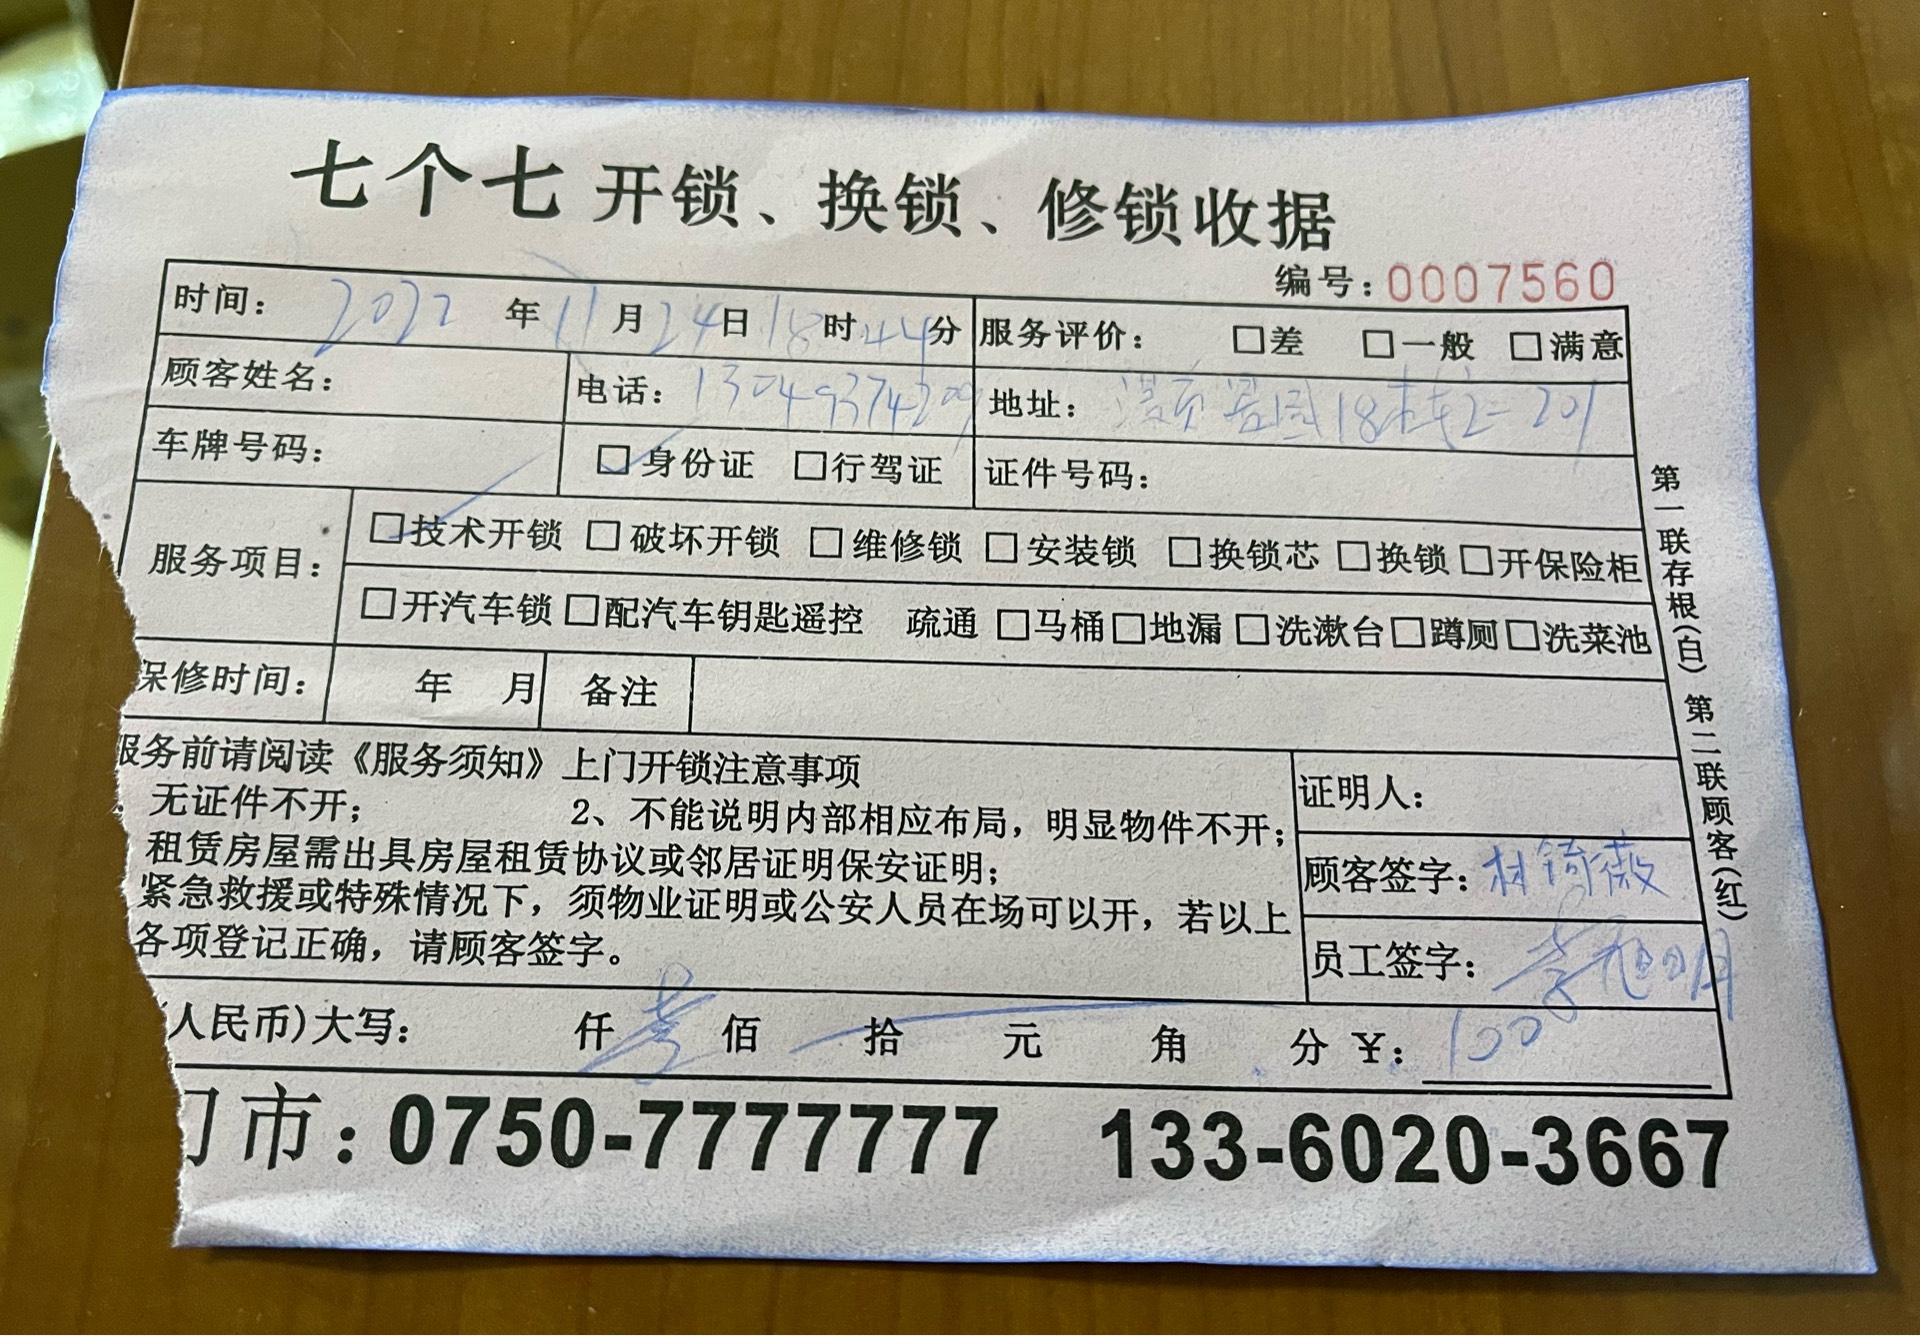 七个七 开锁、换锁、修锁收据
编号：0007560
时间： 2022 年 11 月 24 日 18 时 44 分 服务评价： □差 □一般 □满意
顾客姓名： 电话：13049374209 地址： 景园18栋2=201
车牌号码： □身份证 □行驾证 证件号码：
服务项目： □技术开锁 □破坏开锁 □维修锁 □安装锁 □换锁芯 □换锁 □开保险柜
□开汽车锁 □配汽车钥匙遥控 疏通 □马桶 □地漏 □洗漱台 □蹲厕 □洗菜池
保修时间： 年 月 备注
服务前请阅读《服务须知》上门开锁注意事项
无证件不开； 2、不能说明内部相应布局，明显物件不开；
租赁房屋需出具房屋租赁协议或邻居证明保安证明；
紧急救援或特殊情况下，须物业证明或公安人员在场可以开，若以上
各项登记正确，请顾客签字。
证明人：
顾客签字：林锜薇
员工签字：李旭明
人民币)大写： 仟 壹 佰 拾 元 角 分 ¥：100
门市：0750-7777777 133-6020-3667
第一联存根(白) 第二联顾客(红)